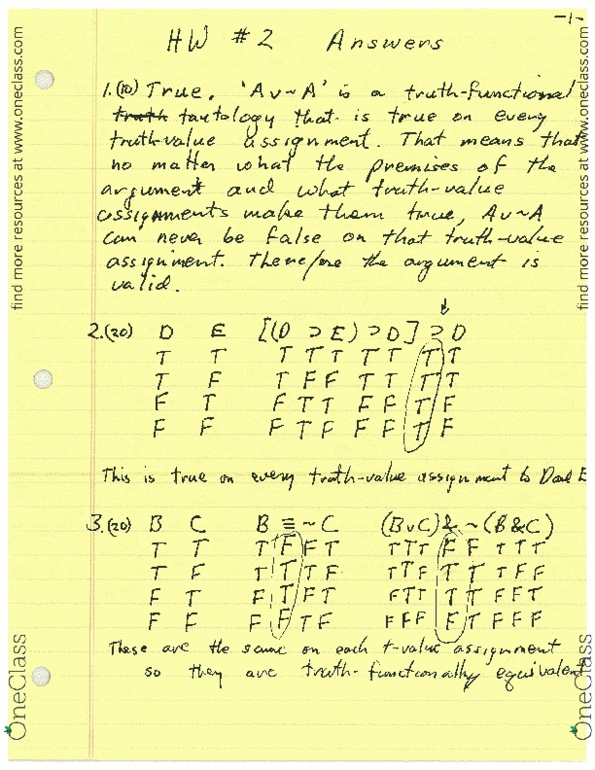 -1-
HW #2 Answers
1.(10) True. 'A v ~ A' is a truth-functional
truth tautology that is true on every
truth-value assignment. That means that
no matter what the premises of the
argument and what truth-value
assignments make them true, A v ~ A
can never be false on that truth-value
assignment. Therefore the argument is
valid.
↓
2.(20) D E [(D ⊃ E) ⊃ D] ⊃ D
T T T T T T T T T
T F T F F T T T T
F T F T T F F T F
F F F T F F F T F
This is true on every truth-value assignment to D and E
3.(20) B C B ≡ ~ C (B v C) & ~ (B & C)
T T T F F T T T T F F T T T
T F T T T F T T F T T T F F
F T F T F T F T T T T F F T
F F F F T F F F F F T F F F
These are the same on each t-value assignment
so they are truth-functionally equivalent
find more resources at www.oneclass.com
find more resources at www.oneclass.com
OneClass
OneClass